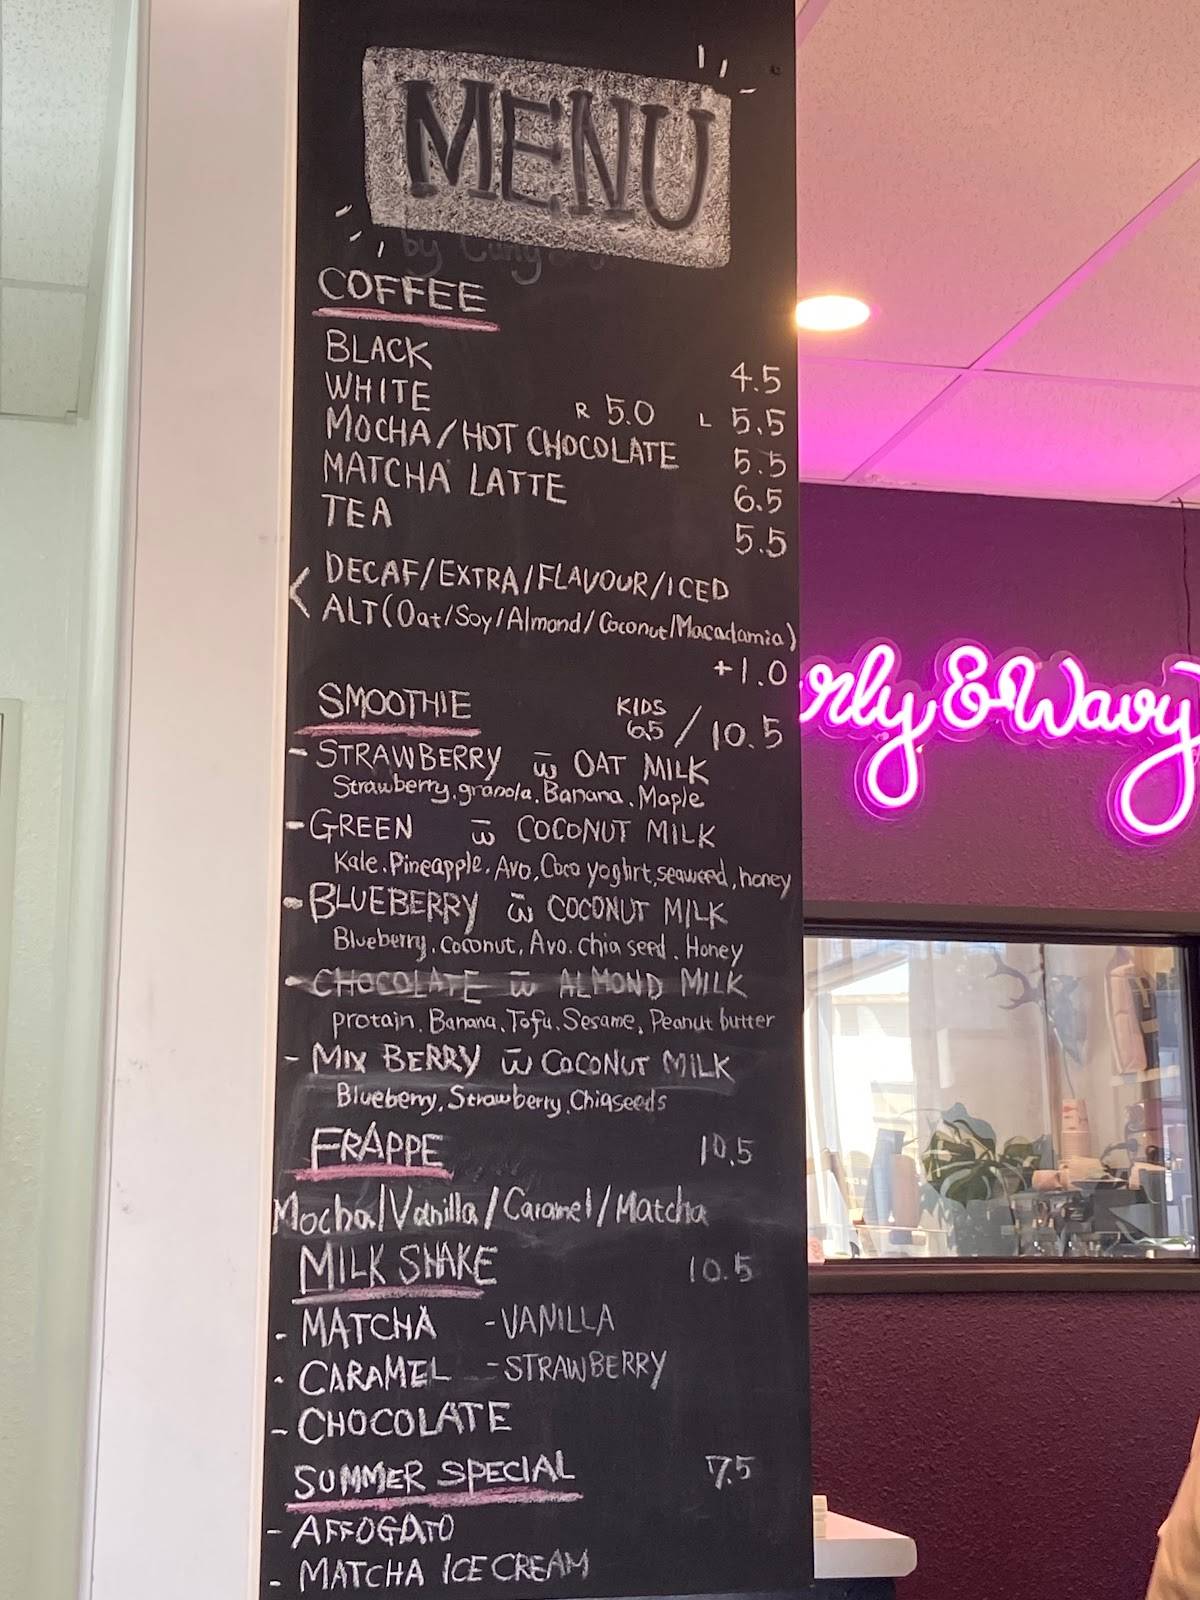 MENU
by
COFFEE
BLACK 4.5
WHITE R 5.0 L 5.5
MOCHA/HOT CHOCOLATE 5.5
MATCHA LATTE 6.5
TEA 5.5
DECAF/EXTRA/FLAVOUR/ICED
ALT(Oat/Soy/Almond/Coconut/Macadamia)
+1.0
SMOOTHIE KIDS 6.5 / 10.5
- STRAWBERRY w̄ OAT MILK
Strawberry.granola.Banana.Maple
- GREEN w̄ COCONUT MILK
Kale.Pineapple.Avo.Coco yoghrt.seaweed,honey
- BLUEBERRY w̄ COCONUT MILK
Blueberry.coconut.Avo.chia seed.Honey
- CHOCOLATE w̄ ALMOND MILK
protain.Banana.Tofu.Sesame.Peanut butter
- MIX BERRY w̄ COCONUT MILK
Blueberry,Strawberry,Chiaseeds
FRAPPE 10.5
Mocha/Vanilla/Caramel/Matcha
MILK SHAKE 10.5
- MATCHA - VANILLA
- CARAMEL - STRAWBERRY
- CHOCOLATE
SUMMER SPECIAL 7.5
- AFFOGATO
- MATCHA ICE CREAM
rly & Wavy